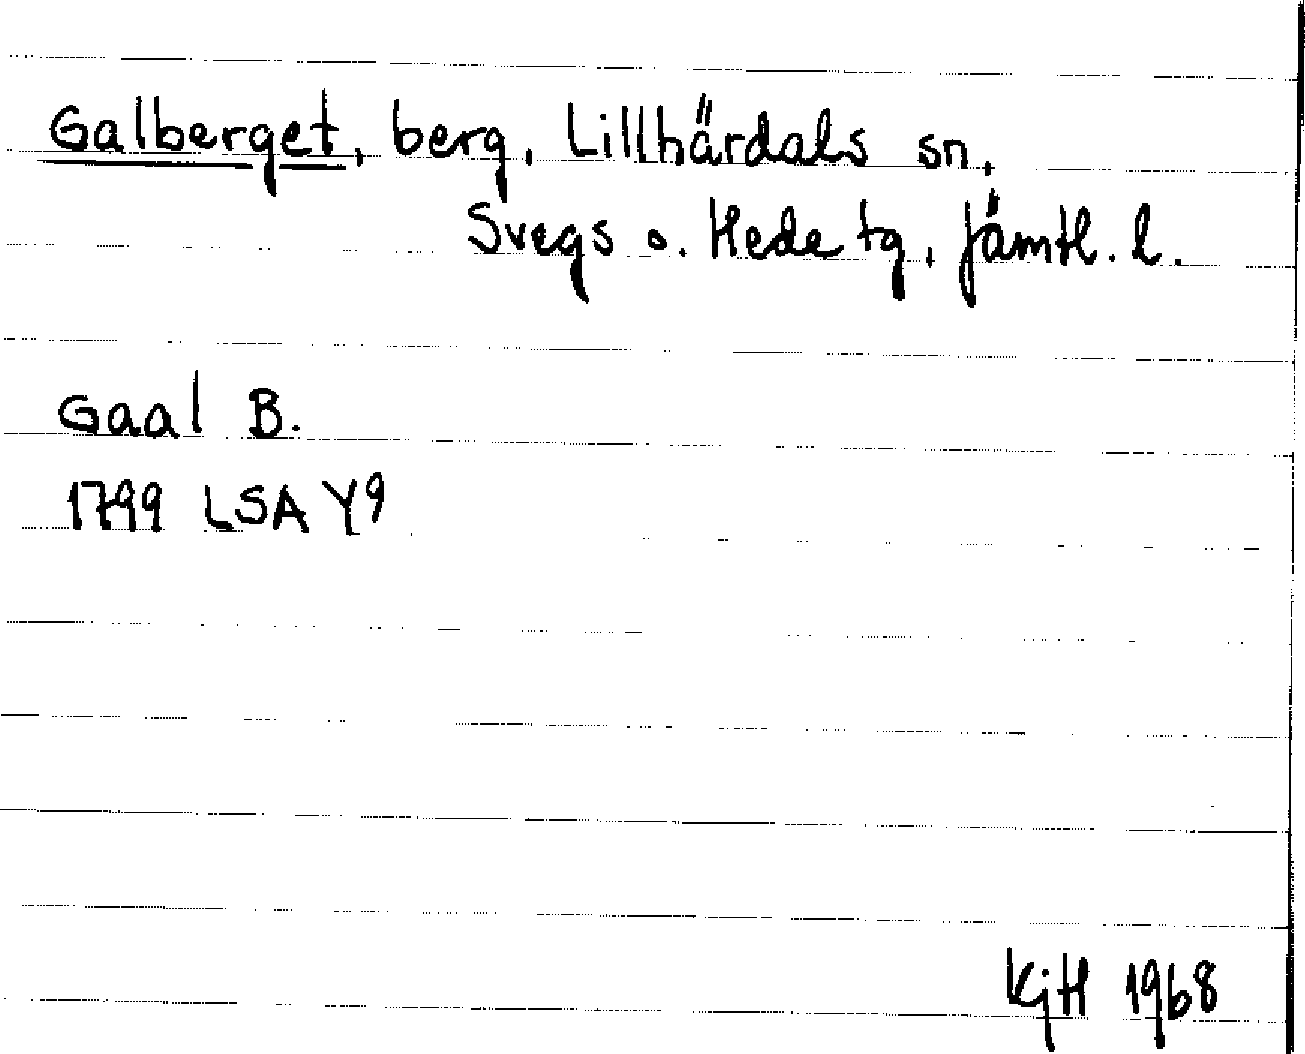 Galberget, berg, Lillhärdals sn,
Svegs o. Hede tg, Jämtl. l.
Gaal B.
1799 LSA Y9
KjH 1968